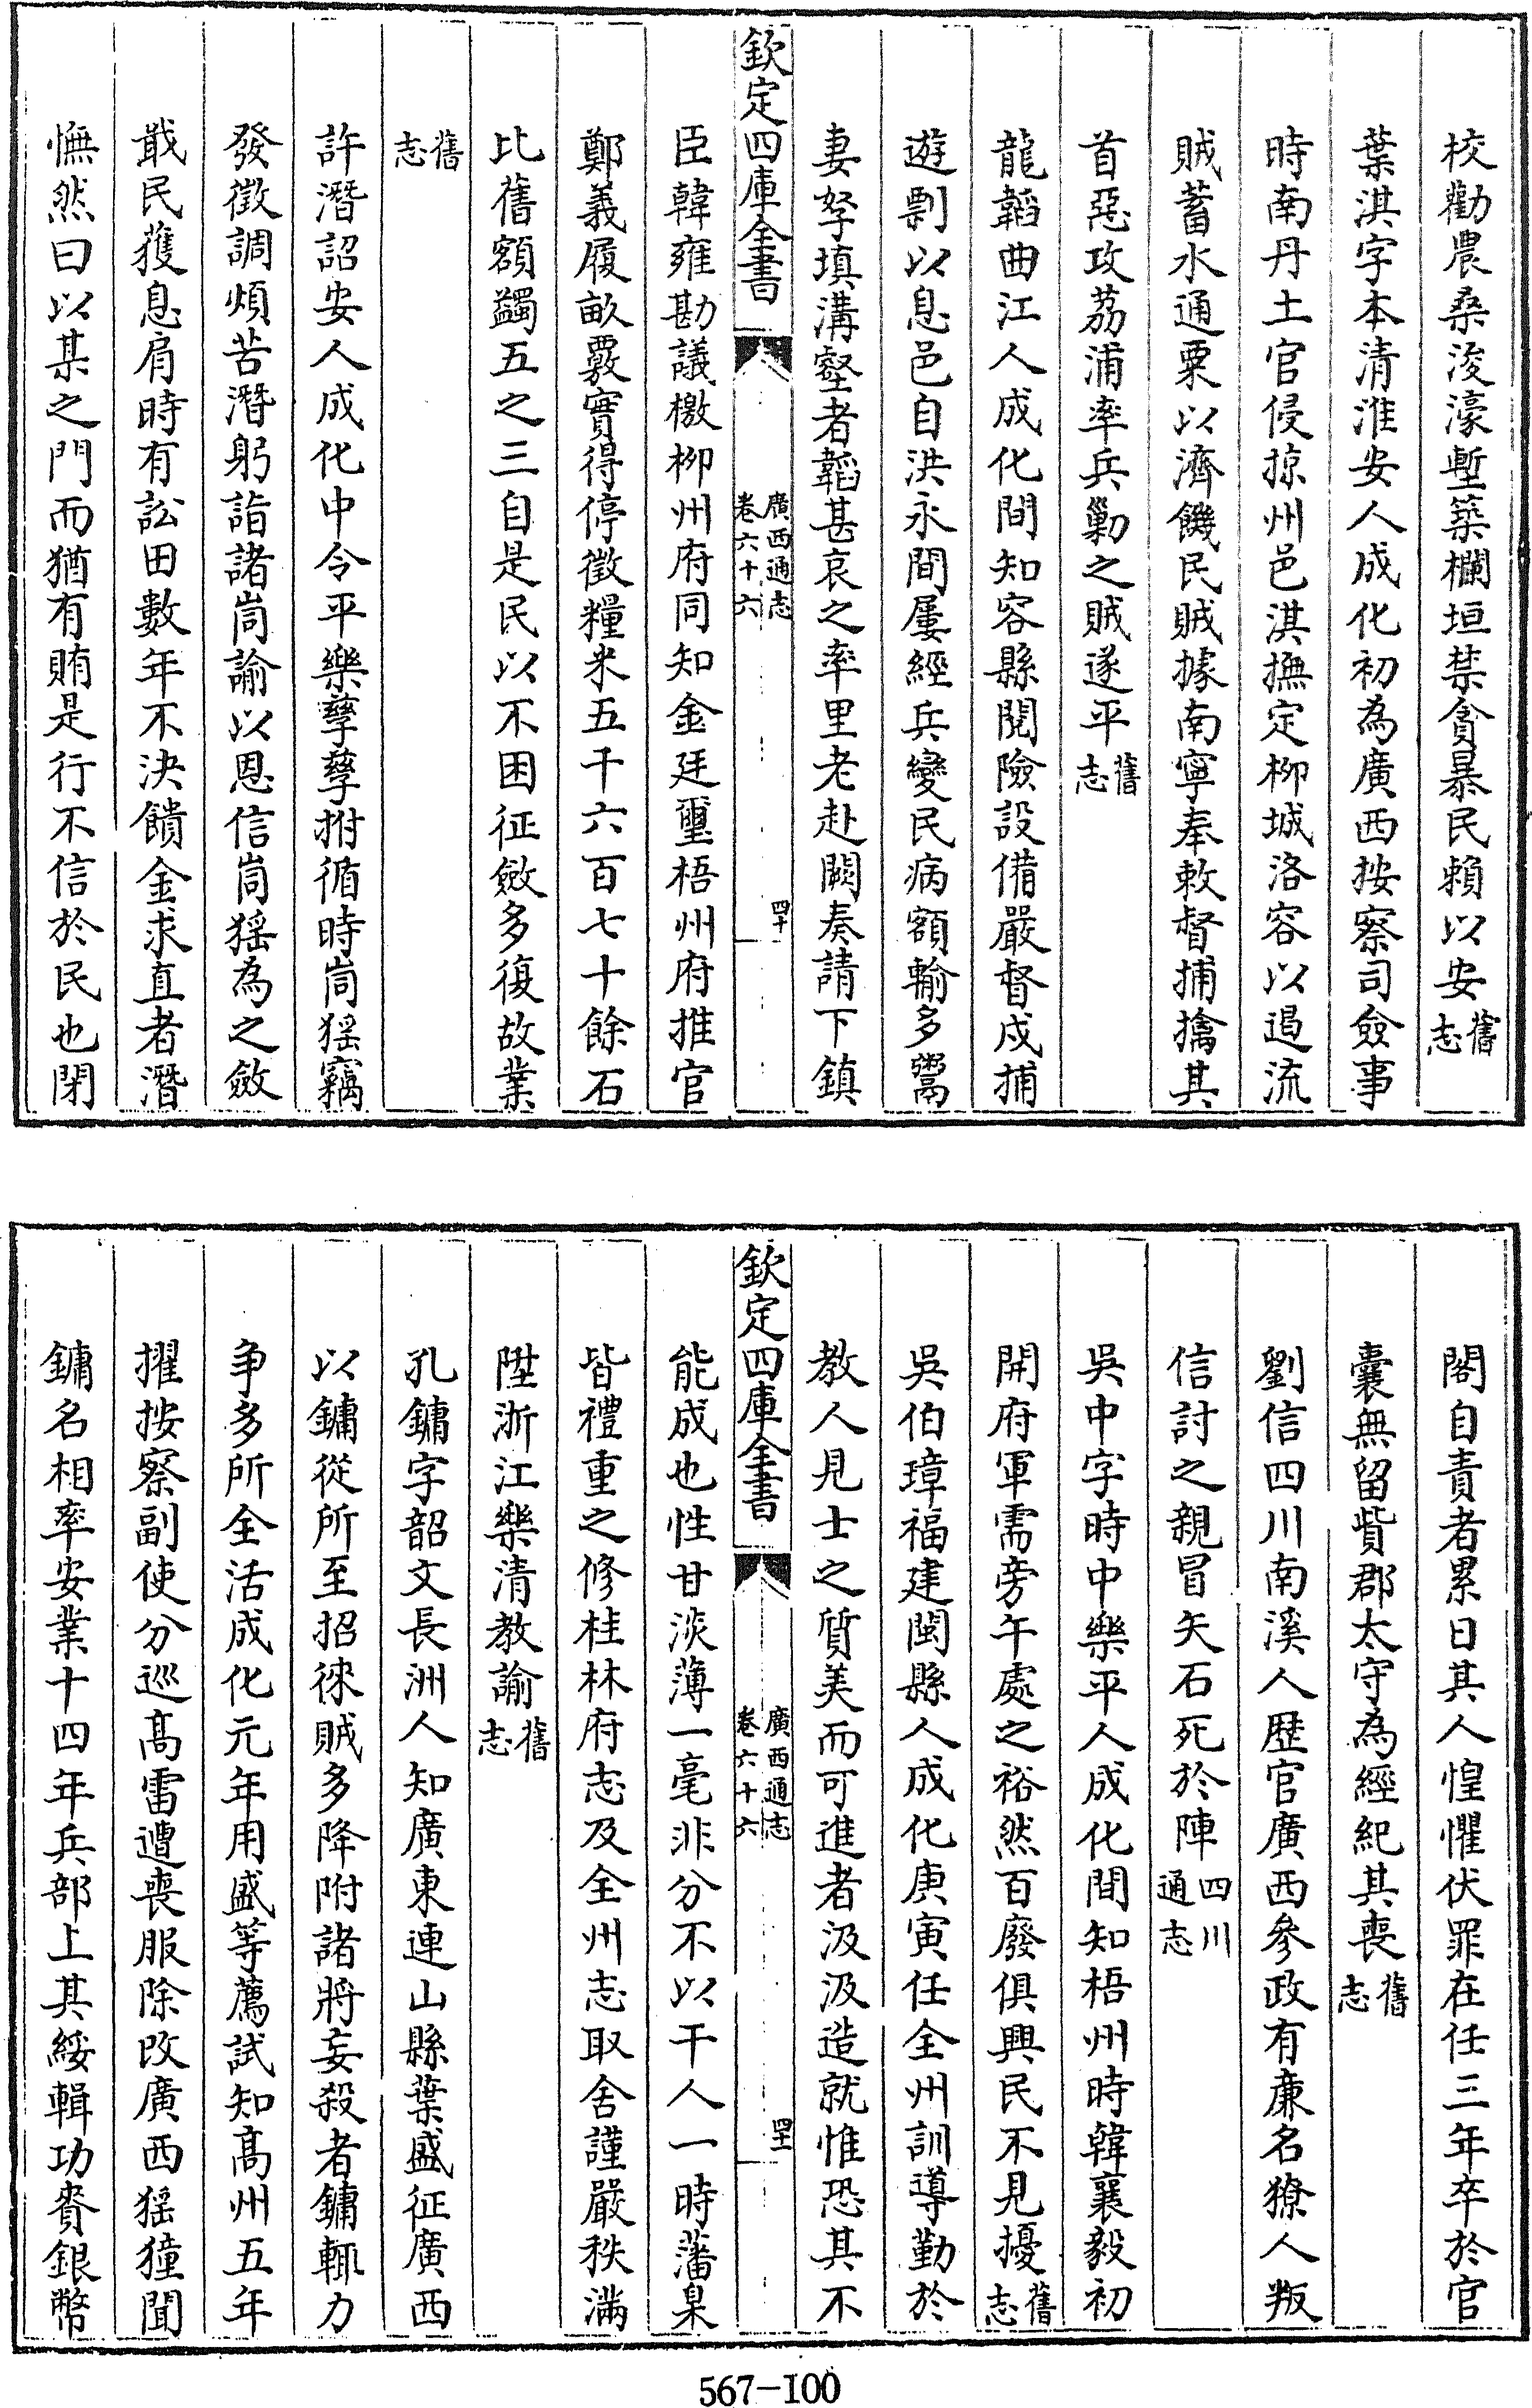 校勸農桑浚濠塹築欄垣禁貪暴民賴以安舊志
葉淇字本清淮安人成化初為廣西按察司僉事
時南丹土官侵掠州邑淇撫定柳城洛容以遏流
賊蓄水通粟以濟饑民賊據南寧奉敕督捕擒其
首惡攻荔浦率兵勦之賊遂平舊志
龍韜曲江人成化間知容縣閱險設備嚴督戍捕
遊剽以息邑自洪永間屢經兵變民病額輸多鬻
妻孥填溝壑者韜甚哀之率里老赴闕奏請下鎮
欽定四庫全書
廣西通志
卷六十六
四十
臣韓雍勘議檄柳州府同知金廷璽梧州府推官
鄭義履畝覈實得停徵糧米五千六百七十餘石
比舊額蠲五之三自是民以不困征斂多復故業
舊志
許潛詔安人成化中令平樂孳孳拊循時峝猺竊
發徵調煩苦潛躬詣諸峝諭以恩信峝猺為之斂
戢民獲息肩時有訟田數年不決饋金求直者潛
憮然曰以某之門而猶有賄是行不信於民也閉
閣自責者累日其人惶懼伏罪在任三年卒於官
囊無留貲郡太守為經紀其喪舊志
劉信四川南溪人歷官廣西參政有廉名獠人叛
信討之親冒矢石死於陣四川通志
吳中字時中樂平人成化間知梧州時韓襄毅初
開府軍需旁午處之裕然百廢俱興民不見擾舊志
吳伯璋福建閩縣人成化庚寅任全州訓導勤於
教人見士之質美而可進者汲汲造就惟恐其不
欽定四庫全書
廣西通志
卷六十六
四十一
能成也性甘淡薄一毫非分不以干人一時藩臬
皆禮重之修桂林府志及全州志取舍謹嚴秩滿
陞浙江樂清教諭舊志
孔鏞字韶文長洲人知廣東連山縣葉盛征廣西
以鏞從所至招徠賊多降附諸將妄殺者鏞輒力
爭多所全活成化元年用盛等薦試知高州五年
擢按察副使分巡高雷遭喪服除改廣西猺獞聞
鏞名相率安業十四年兵部上其綏輯功賚銀幣
567-100